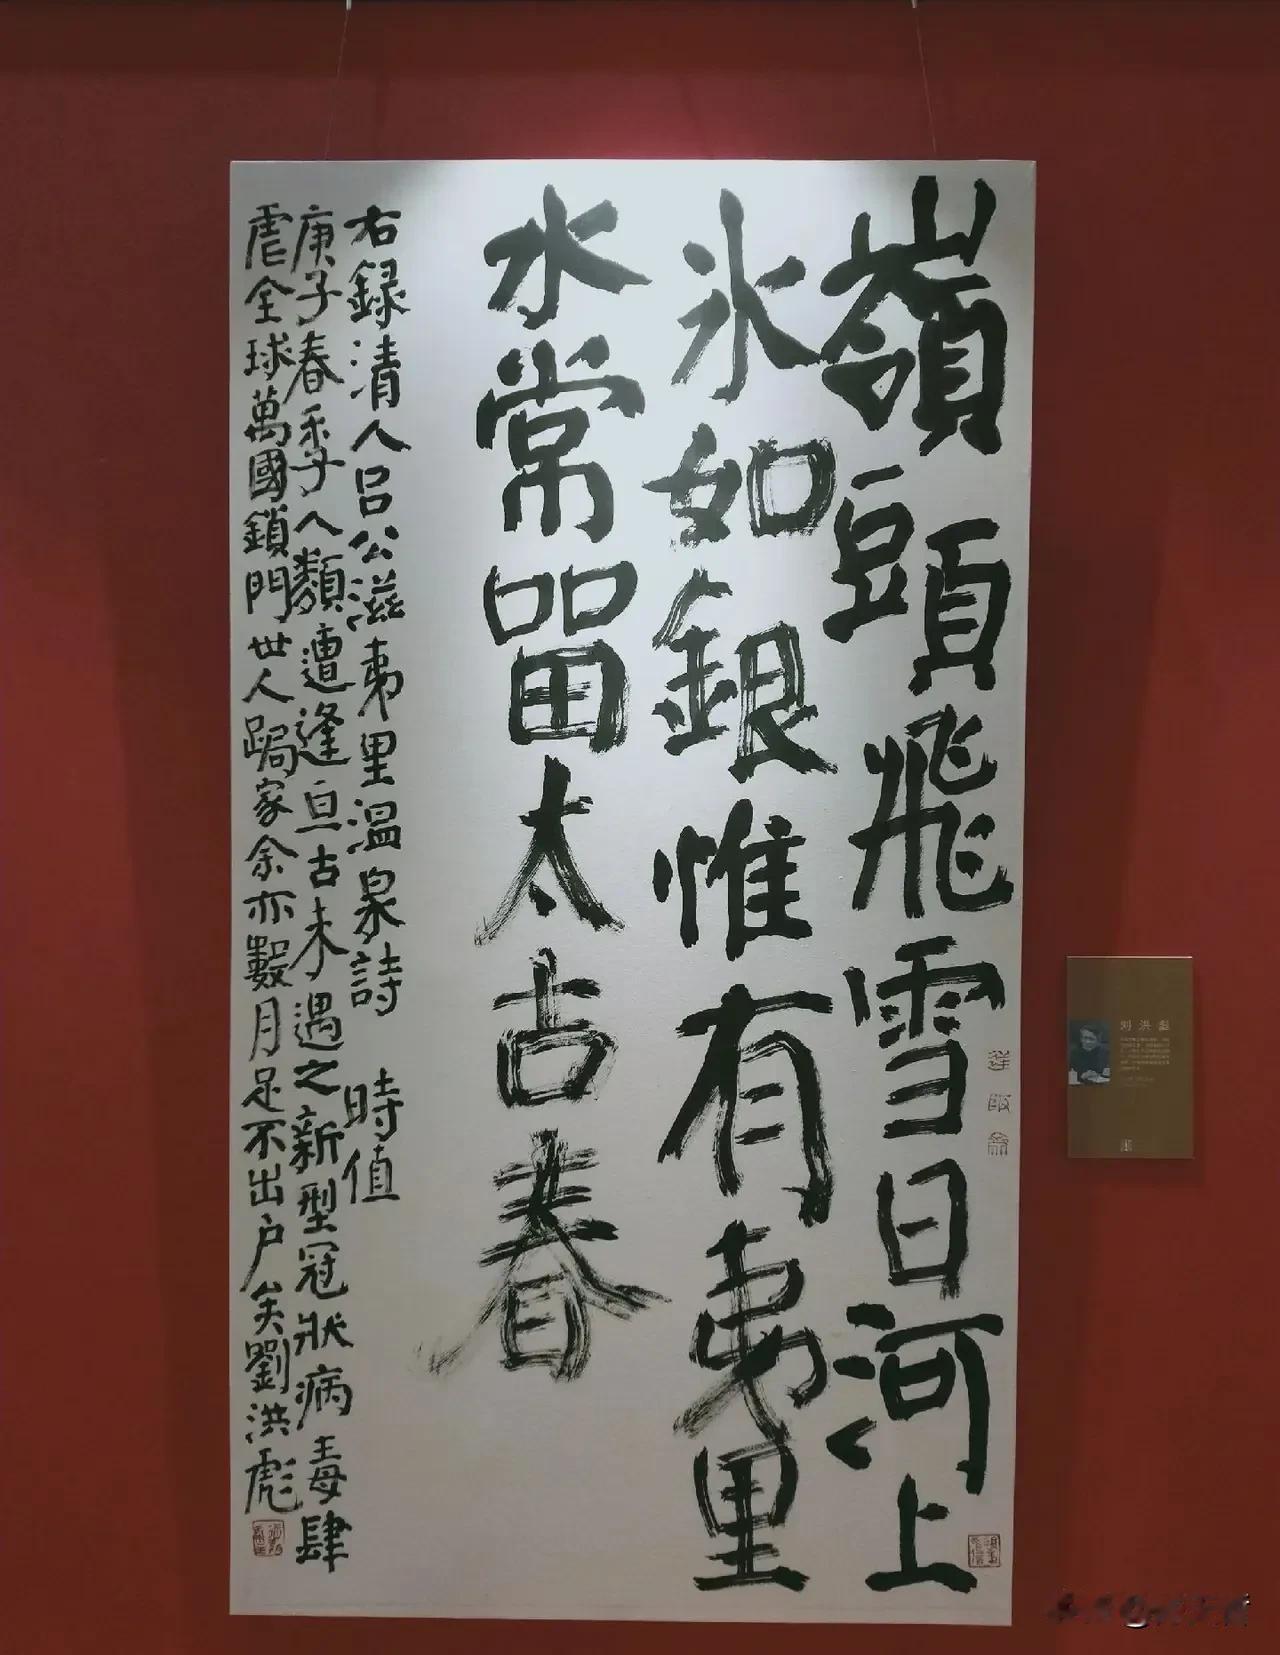 嶺頭飛雪日河上
氷如銀惟有夷里
水常畱太古春
右録清人吕公滋夷里温泉詩 時值
庚子春季人類遭逢亘古未遇之新型冠狀病毒肆
虐全球萬國鎖門世人跼家余亦數月足不出户矣劉洪彪
刘洪彪